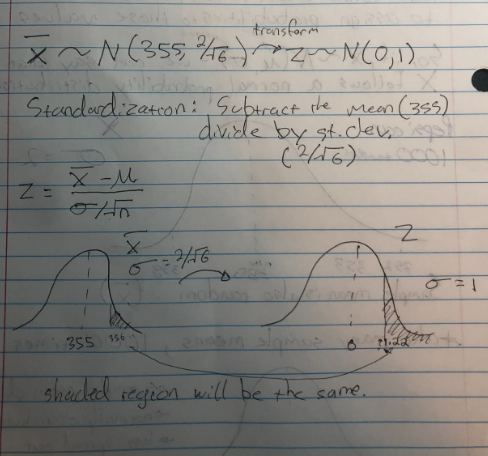 transform
X̄ ~ N(355, 2/√6) → Z ~ N(0,1)
Standardization: Subtract the mean (355)
divide by st. dev.
(2/√6)
Z = X̄ - M / σ/√n
X̄
σ = 2/√6
Z
σ = 1
355 356
0 1.22
shaded region will be the same.